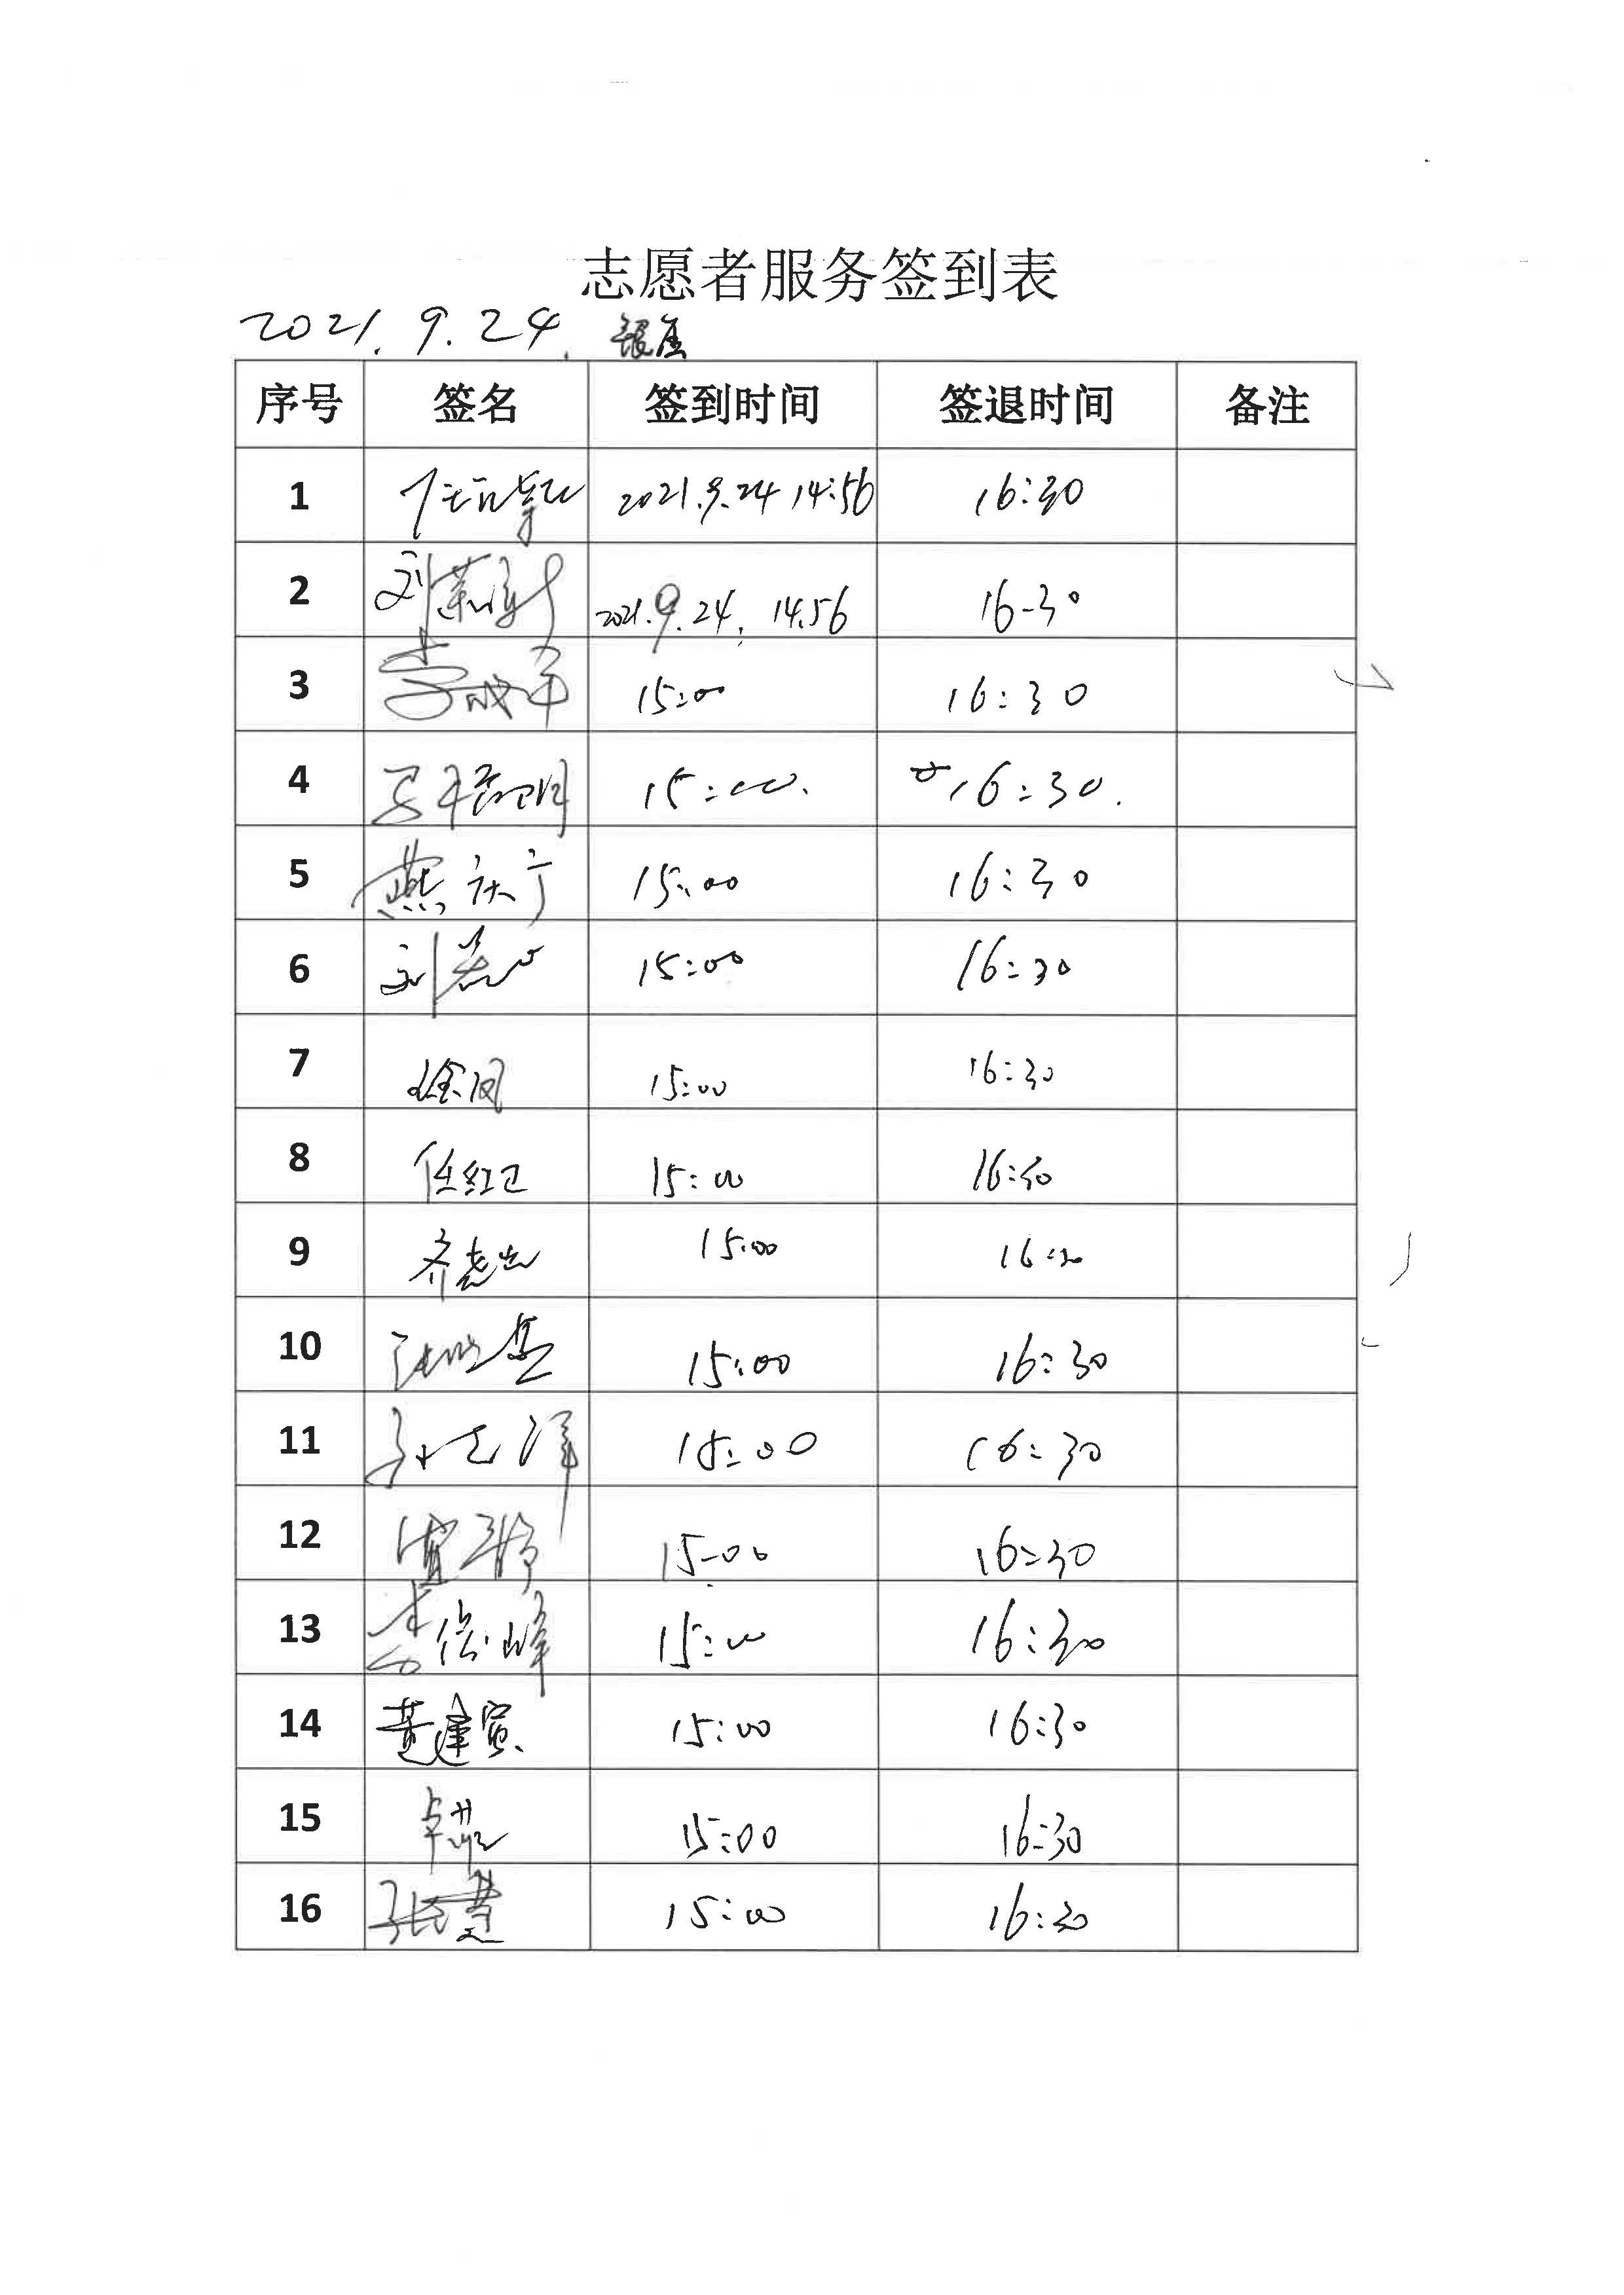 志愿者服务签到表
2021.9.24. 银座
序号 签名 签到时间 签退时间 备注
1 2021.9.24 14:56 16:30
2 刘 2021.9.24. 14.56 16-30
3 李 15:00 16:30
4 15:00. 16:30.
5 燕庆宁 15:00 16:30
6 刘 15:00 16:30
7 徐凤 15:00 16:30
8 任红卫 15:00 16:30
9 齐 15:00 16:30
10 15:00 16:30
11 孙志洋 15:00 16:30
12 15-00 16:30
13 李 峰 15:00 16:30
14 黄建寅 15:00 16:30
15 卓 15:00 16:30
16 张慧 15:00 16:30